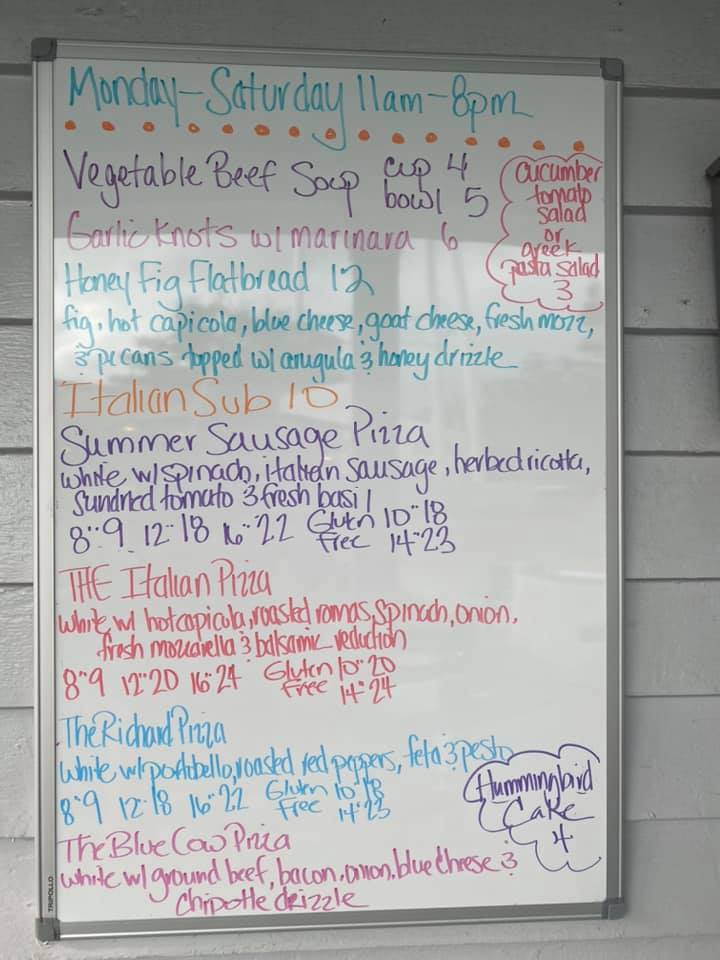 Monday-Saturday 11am-8pm
Vegetable Beef Soup cup 4
bowl 5
cucumber
tomato
salad
or
greek
pasta salad
3
Garlic Knots w/ marinara 6
Honey Fig Flatbread 12
fig, hot capicola, blue cheese, goat cheese, fresh mozz,
& pecans topped w/ arugula & honey drizzle
Italian Sub 10
Summer Sausage Pizza
white w/ spinach, italian sausage, herbed ricotta,
sundried tomato & fresh basil
8"·9 12"·18 16"·22 Gluten 10"·18
Free 14"·23
THE Italian Pizza
white w/ hot capicola, roasted romas, spinach, onion,
fresh mozzarella & balsamic reduction
8"·9 12"·20 16"·24 Gluten 10"·20
Free 14"·24
The Richard Pizza
white w/ portobello, roasted red peppers, feta & pesto
8"·9 12"·18 16"·22 Gluten 10"·18
Free 14"·23
Hummingbird
Cake
4
The Blue Cow Pizza
white w/ ground beef, bacon, onion, blue cheese &
chipotle drizzle
TRIPOLLO